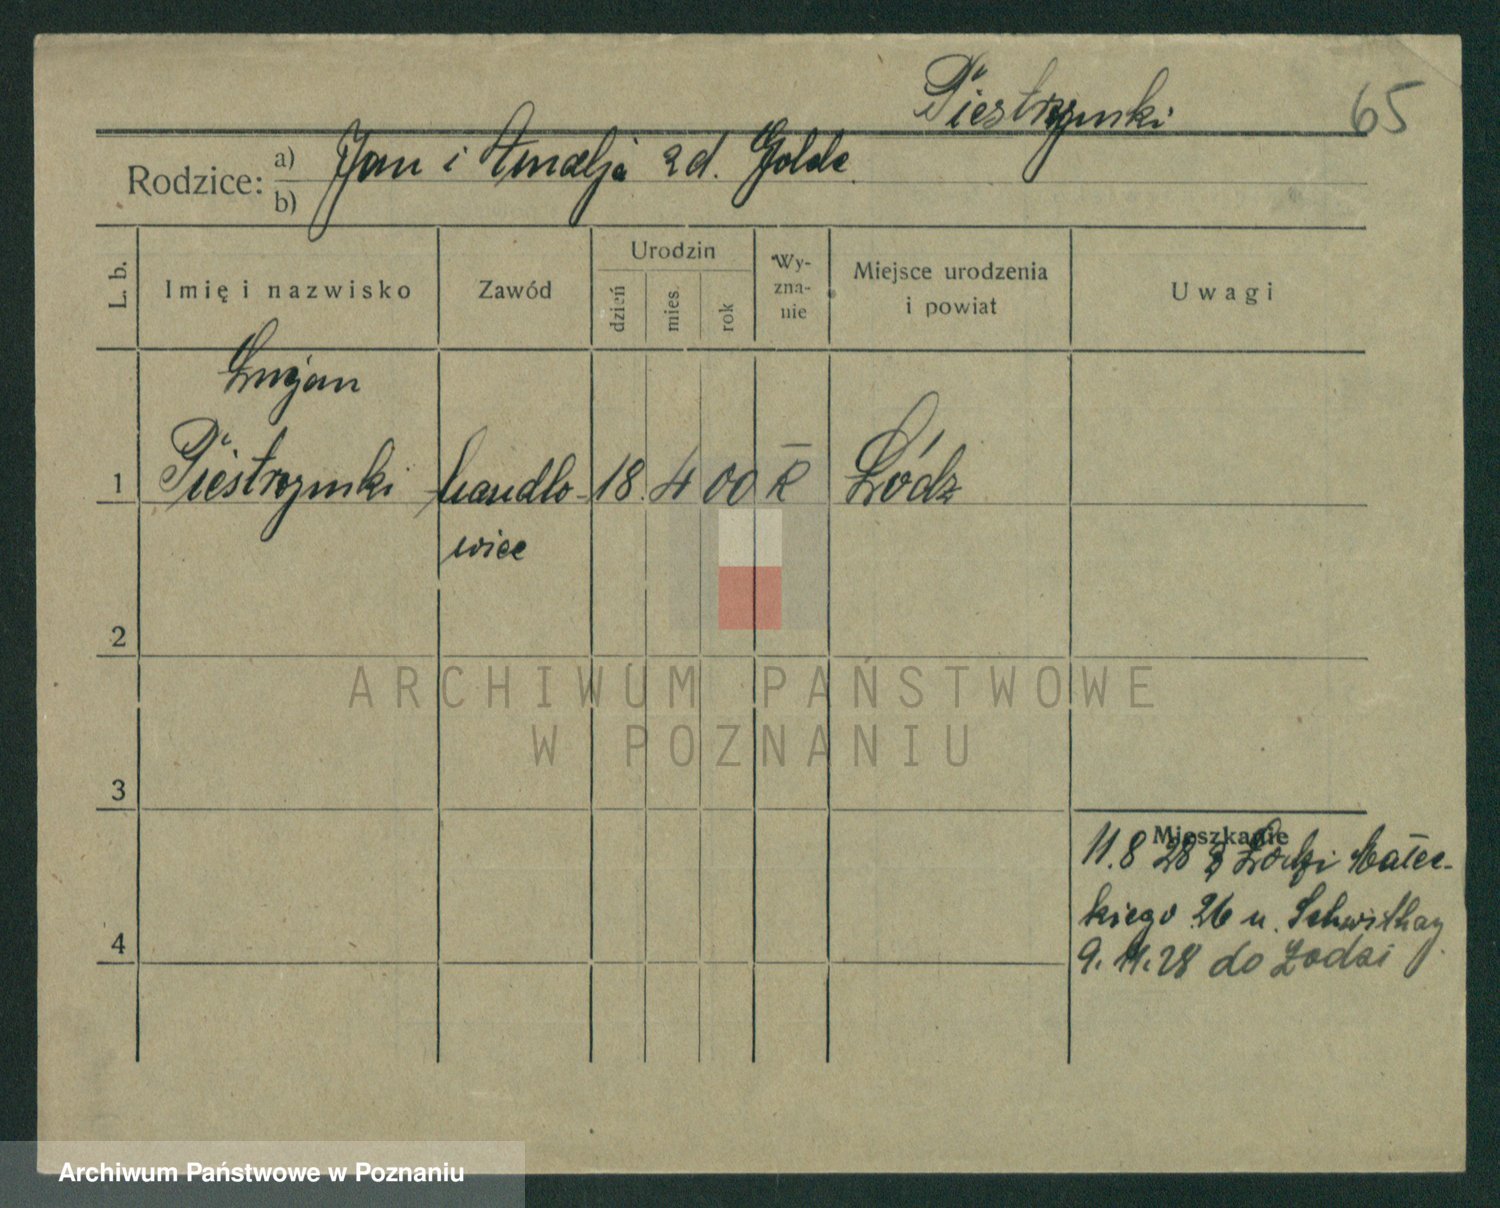 Piestrzynski 65
Rodzice: a) Jan i Amalja zd. Golde.
b)
L. b. Imię i nazwisko Zawód Urodzin dzień mies. rok Wy-zna-nie Miejsce urodzenia i powiat Uwagi
Lucjan
1 Piestrzynski handlo- 18. 4 00 K Łódz
wiec
2
ARCHIWUM PAŃSTWOWE
W POZNANIU
3
Mieszkanie
11.8 28 z Łodzi Małec-
kiego 26 u.
4
9. 11. 28 do Łodzi
Archiwum Państwowe w Poznaniu